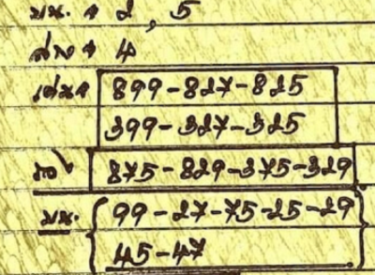 บน. ๑ 2, 5
ล่าง ๑ 4
เด่น ๑ 899-827-825
399-327-325
875-829-375-329
บน. 99-27-75-25-29
45-47